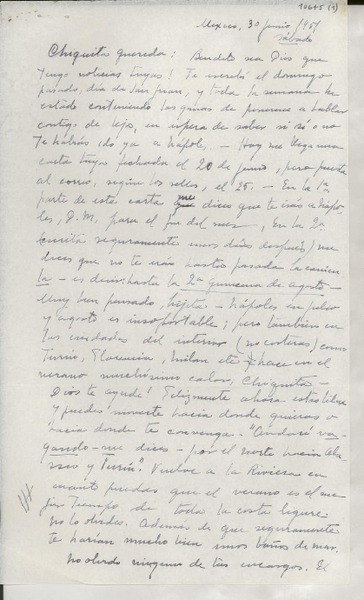 10675 (1)
Mexico, 30 junio /951
Sábado
Chiquita querida: Bendito sea Dios que
tengo noticias tuyas! Te escribí el domingo
pasado, día de San Juan, y toda la semana he
estado conteniendo las ganas de ponerme a hablar
contigo de lejos, en espera de saber si sí o no
te habías ido ya a Nápoles. — Hoy me llega una
carta tuya fechada el 20 de junio, pero puesta
al correo, según los sellos, el 25. — En la 1a
parte de esta carta me dices que te irás a Nápo-
les, D.M. para el fin del mes, En la 2a
(escrita seguramente unos días después) me
dices que no te irás hasta pasada la canícu
la — es decir: hasta la 2a quincena de agosto —
Muy bien pensado, hijita — Nápoles en julio
y agosto es insoportable; pero también en
las ciudades del interior (no costeras) como
Turín, Florencia, Milán etc hace en el
verano muchísimo calor, Chiquita —
Dios te ayude! Felizmente ahora estás libre
y puedes moverte hacia donde quieras o
hacia donde te convenga — "Andaré va-
gando — me dices — por el norte hacia
y Turín". Vuelve a la Riviera en
cuanto puedas que el verano es el me
jor tiempo de toda la costa ligure
no lo olvides. Además de que seguramente
te harían mucho bien unos baños de mar.
No olvido ninguno de tus encargos. El